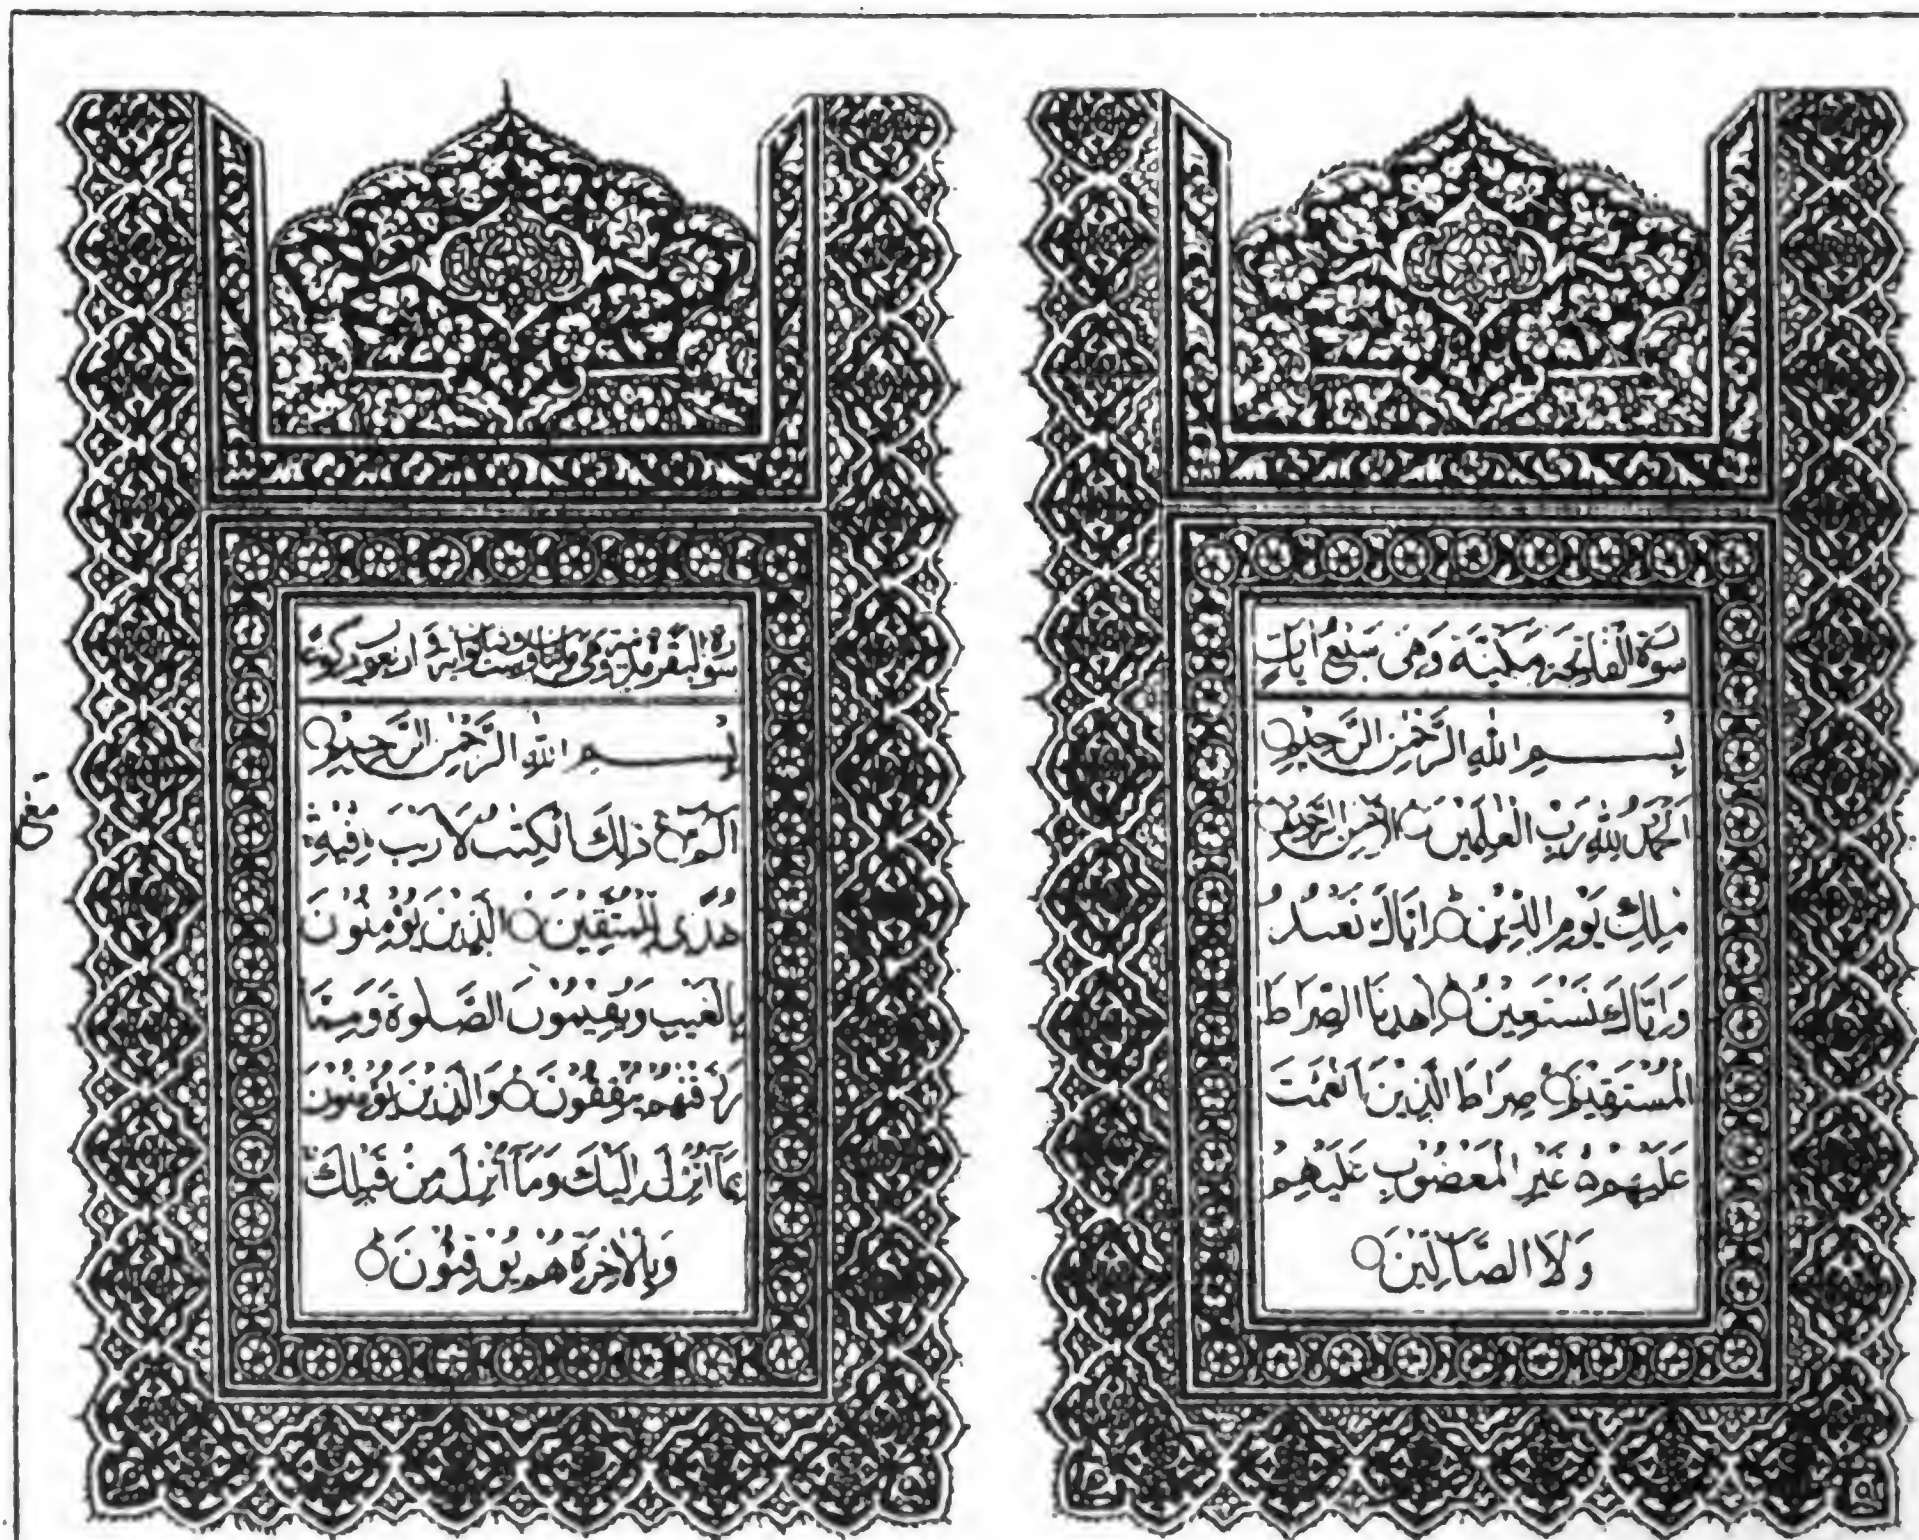 سورة الفاتحة مكية وهي سبع ايات
بِسْمِ اللهِ الرَّحْمٰنِ الرَّحِيْمِ
اَلْحَمْدُ لِلّٰهِ رَبِّ الْعٰلَمِيْنَ الرَّحْمٰنِ الرَّحِيْمِ
مٰلِكِ يَوْمِ الدِّيْنِ اِيَّاكَ نَعْبُدُ
وَاِيَّاكَ نَسْتَعِيْنُ اِهْدِنَا الصِّرَاطَ
الْمُسْتَقِيْمَ صِرَاطَ الَّذِيْنَ اَنْعَمْتَ
عَلَيْهِمْ غَيْرِ الْمَغْضُوْبِ عَلَيْهِمْ
وَلَا الضَّآلِّيْنَ
سورة البقرة مدنية وهي
بِسْمِ اللهِ الرَّحْمٰنِ الرَّحِيْمِ
الٓمّٓ ذٰلِكَ الْكِتٰبُ لَا رَيْبَ فِيْهِ
هُدًى لِّلْمُتَّقِيْنَ الَّذِيْنَ يُؤْمِنُوْنَ
بِالْغَيْبِ وَيُقِيْمُوْنَ الصَّلٰوةَ وَمِمَّا
رَزَقْنٰهُمْ يُنْفِقُوْنَ وَالَّذِيْنَ يُؤْمِنُوْنَ
بِمَآ اُنْزِلَ اِلَيْكَ وَمَآ اُنْزِلَ مِنْ قَبْلِكَ
وَبِالْاٰخِرَةِ هُمْ يُوْقِنُوْنَ